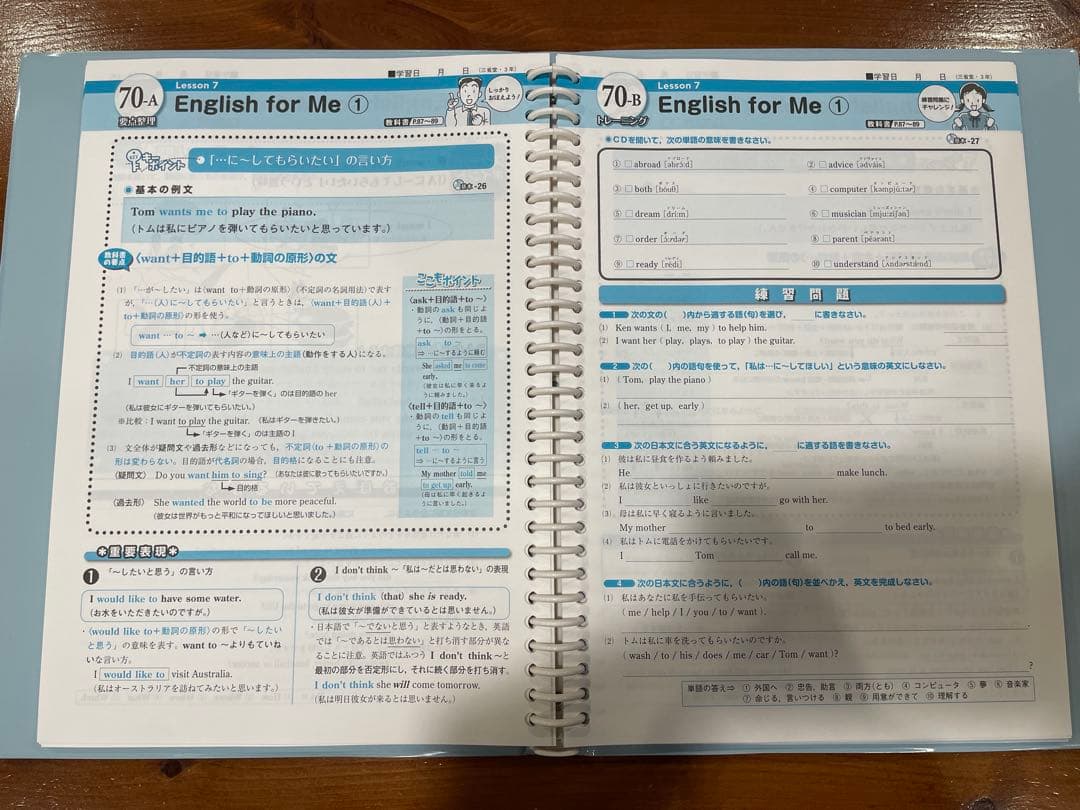 Lesson 7
70-A
English for Me ①
要点整理
■学習日 月 日 (三省堂・3年)
しっかりおぼえよう!
教科書 P.87〜89
キーポイント
「…に〜してもらいたい」の言い方
● 基本の例文
-26
Tom wants me to play the piano.
(トムは私にピアノを弾いてもらいたいと思っています。)
教科書の要点
〈want+目的語+to+動詞の原形〉の文
(1) 「…が〜したい」は〈want to+動詞の原形〉(不定詞の名詞用法)で表すが,
「…(人)に〜してもらいたい」と言うときは,〈want+目的語(人)+
to+動詞の原形〉の形を使う。
want … to 〜 ➡ …(人など)に〜してもらいたい
(2) 目的語(人)が不定詞の表す内容の意味上の主語(動作をする人)になる。
不定詞の意味上の主語
I want her to play the guitar.
「ギターを弾く」のは目的語の her
(私は彼女にギターを弾いてもらいたい。)
※比較:I want to play the guitar. (私はギターを弾きたい。)
「ギターを弾く」のは主語の I
(3) 文全体が疑問文や過去形などになっても,不定詞〈to+動詞の原形〉の
形は変わらない。目的語が代名詞の場合,目的格になることにも注意。
(疑問文) Do you want him to sing? (あなたは彼に歌ってもらいたいですか。)
目的格
(過去形) She wanted the world to be more peaceful.
(彼女は世界がもっと平和になってほしいと思いました。)
ここもポイント
〈ask+目的語+to 〜〉
・動詞の ask も同じように,〈動詞+目的語+to 〜〉の形をとる。
ask … to 〜
⇒ …に〜するように頼む
She asked me to come early.
(彼女は私に早く来るように頼みました。)
〈tell+目的語+to 〜〉
・動詞の tell も同じように,〈動詞+目的語+to 〜〉の形をとる。
tell … to 〜
⇒ …に〜するように言う
My mother told me to get up early.
(母は私に早く起きるように言いました。)
*重要表現*
❶ 「〜したいと思う」の言い方
I would like to have some water.
(お水をいただきたいのですが。)
・〈would like to+動詞の原形〉の形で「〜したい
と思う」の意味を表す。want to 〜よりもていね
いな言い方。
I would like to visit Australia.
(私はオーストラリアを訪ねてみたいと思います。)
❷ I don't think 〜「私は〜だとは思わない」の表現
I don't think (that) she is ready.
(私は彼女が準備ができているとは思いません。)
・日本語で「〜でないと思う」と表すようなとき,英語
では「〜であるとは思わない」と打ち消す部分が異な
ることに注意。英語ではふつう I don't think 〜と
最初の部分を否定形にし,それに続く部分を打ち消す。
I don't think she will come tomorrow.
(私は明日彼女が来るとは思いません。)
Lesson 7
70-B
English for Me ①
トレーニング
■学習日 月 日 (三省堂・3年)
練習問題にチャレンジ!
教科書 P.87〜89
● CDを聞いて,次の単語の意味を書きなさい。
-27
① abroad [əbrɔ́ːd]
② advice [ədváis]
③ both [bóuθ]
④ computer [kəmpjúːtər]
⑤ dream [dríːm]
⑥ musician [mjuːzíʃən]
⑦ order [ɔ́ːrdər]
⑧ parent [pέərənt]
⑨ ready [rédi]
⑩ understand [ʌ̀ndərstǽnd]
練習問題
1 次の文の( )内から適する語(句)を選び, に書きなさい。
(1) Ken wants ( I, me, my ) to help him.
(2) I want her ( play, plays, to play ) the guitar.
2 次の( )内の語句を使って,「私は…に〜してほしい」という意味の英文にしなさい。
(1) ( Tom, play the piano )
(2) ( her, get up, early )
3 次の日本文に合う英文になるように, に適する語を書きなさい。
(1) 彼は私に昼食を作るよう頼みました。
He make lunch.
(2) 私は彼女といっしょに行きたいのですが。
I like go with her.
(3) 母は私に早く寝るように言いました。
My mother to to bed early.
(4) 私はトムに電話をかけてもらいたいです。
I Tom call me.
4 次の日本文に合うように,( )内の語(句)を並べかえ,英文を完成しなさい。
(1) 私はあなたに私を手伝ってもらいたい。
( me / help / I / you / to / want ).
(2) トムは私に車を洗ってもらいたいのですか。
( wash / to / his / does / me / car / Tom / want )?
?
単語の答え⇒ ① 外国へ ② 忠告,助言 ③ 両方(とも) ④ コンピュータ ⑤ 夢 ⑥ 音楽家
⑦ 命じる,言いつける ⑧ 親 ⑨ 用意ができて ⑩ 理解する